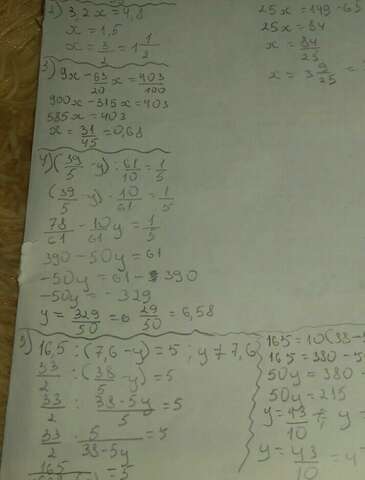 2) 3,2x = 4,8
x = 1,5
x = 3/2 = 1 1/2
3) 9x - 63/20 x = 403/100
900x - 315x = 403
585x = 403
x = 31/45 = 0,68
4) (39/5 - y) : 61/10 = 1/5
(39/5 - y) · 10/61 = 1/5
78/61 - 10/61 y = 1/5
390 - 50y = 61
-50y = 61 - 390
-50y = - 329
y = 329/50 = 6 29/50 = 6,58
5) 16,5 : (7,6 - y) = 5 ; y ≠ 7,6
33/2 : (38/5 - y) = 5
33/2 : 38-5y/5 = 5
33/2 · 5/38-5y = 5
165/ = 5
25x = 149 - 65
25x = 84
x = 84/25
x = 3 9/25 =
165 = 10(38-5
165 = 380 - 5
50y = 380 -
50y = 215
y = 43/10 ; y
y = 43/10 = 4